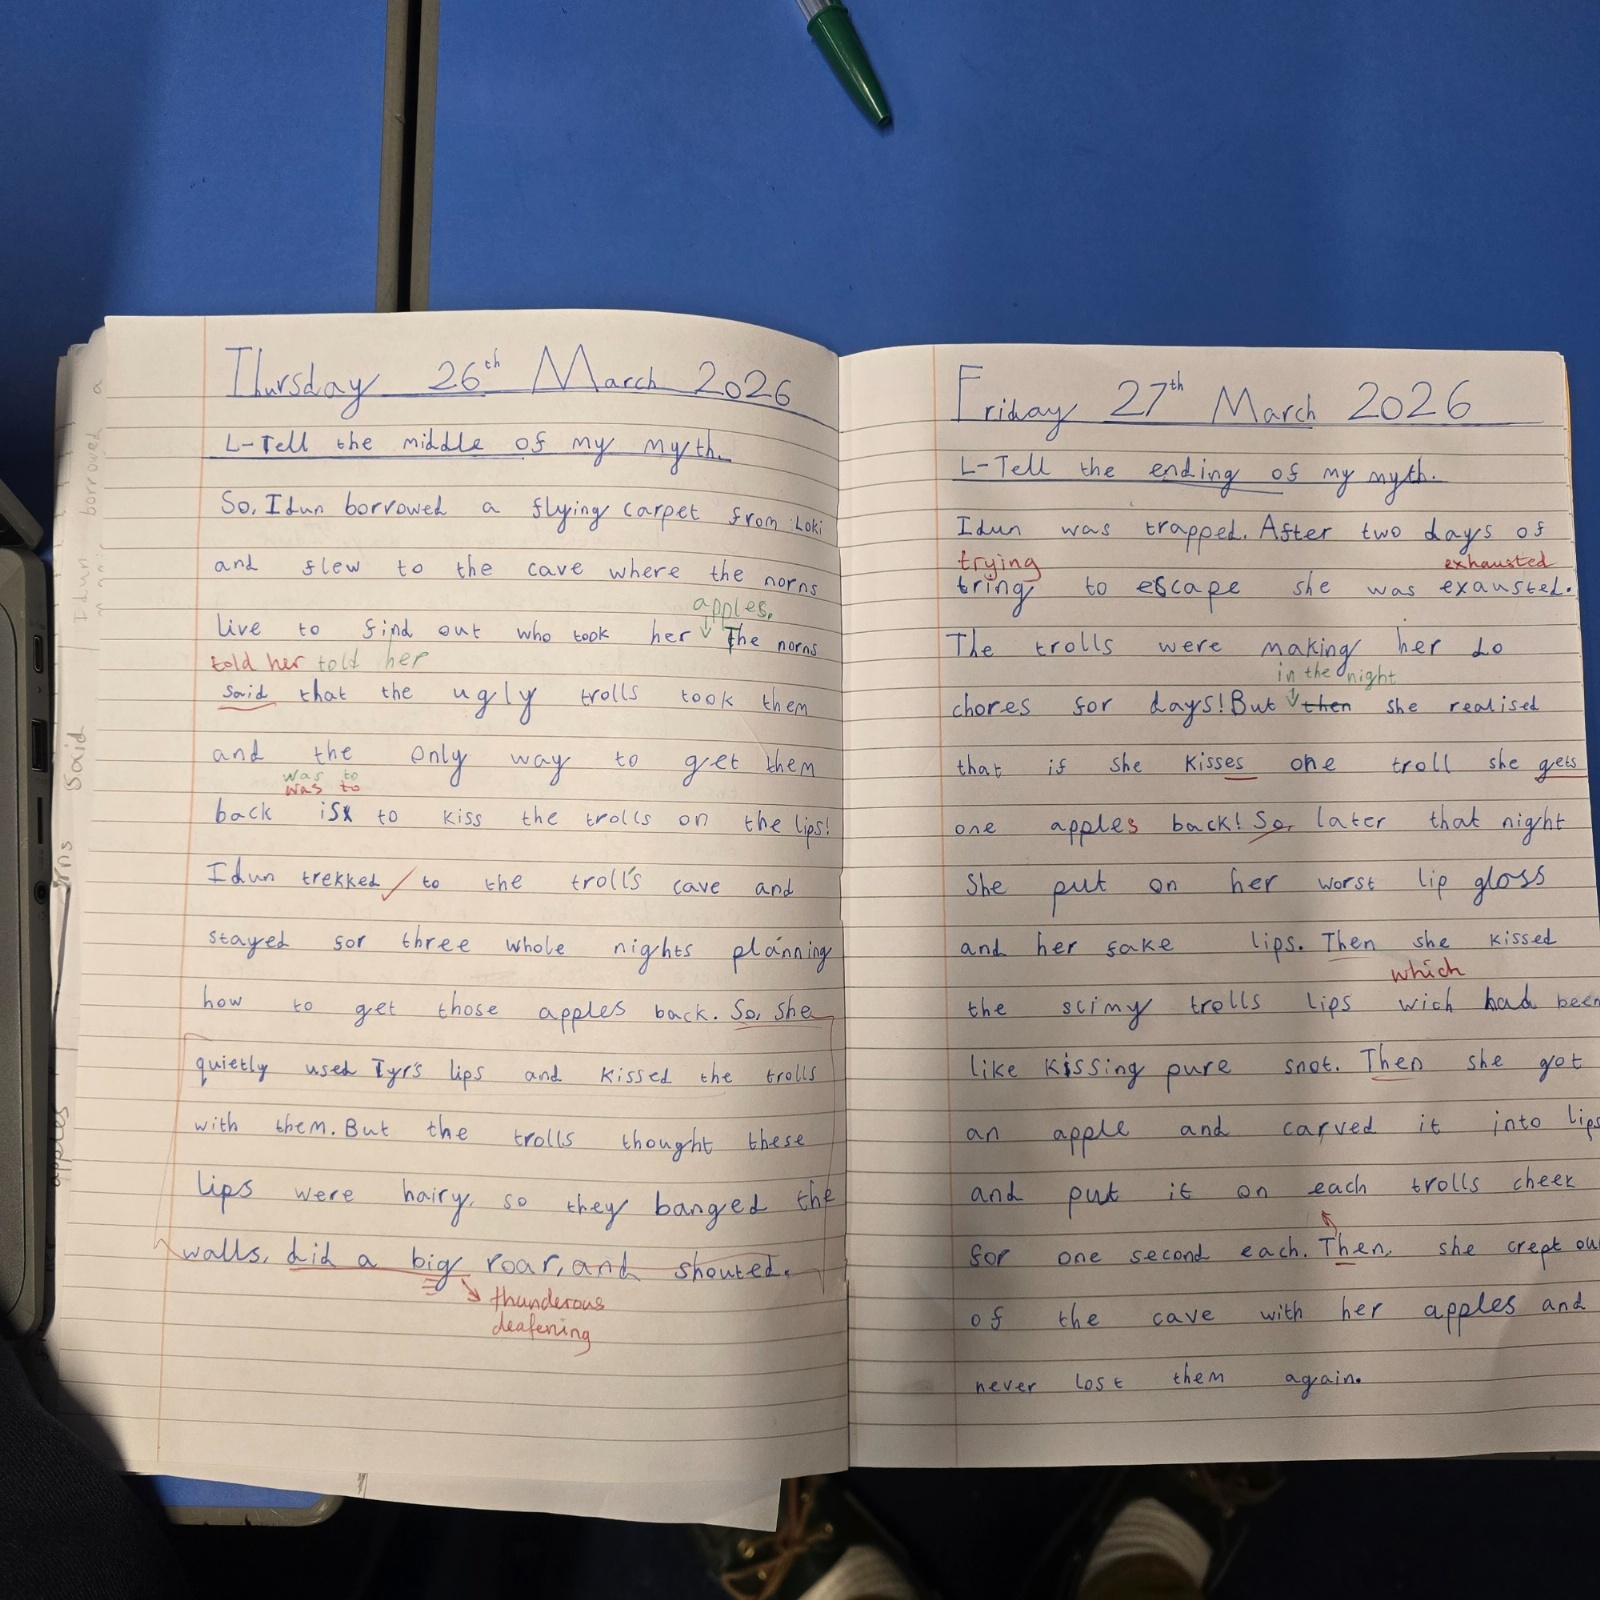 Thursday 26th March 2026
L-Tell the middle of my myth.
So, Idun borrowed a flying carpet from Loki
and flew to the cave where the norns
apples.
live to find out who took her The norns
told her told her
said that the ugly trolls took them
and the only way to get them
was to
was to
back is to kiss the trolls on the lips!
Idun trekked to the troll's cave and
stayed for three whole nights planning
how to get those apples back. So, she
quietly used Tyr's lips and kissed the trolls
with them. But the trolls thought these
lips were hairy, so they banged the
walls, did a big roar, and shouted.
thunderous
deafening
Friday 27th March 2026
L-Tell the ending of my myth.
Idun was trapped. After two days of
trying exhausted
tring to escape she was exausted.
The trolls were making her do
in the night
chores for days! But then she realised
that if she kisses one troll she gets
one apples back! So, later that night
She put on her worst lip gloss
and her fake lips. Then she kissed
which
the slimy trolls lips wich had been
like kissing pure snot. Then she got
an apple and carved it into lips
and put it on each trolls cheek
for one second each. Then, she crept ou
of the cave with her apples and
never lost them again.
Idun borrowed a
said
apples